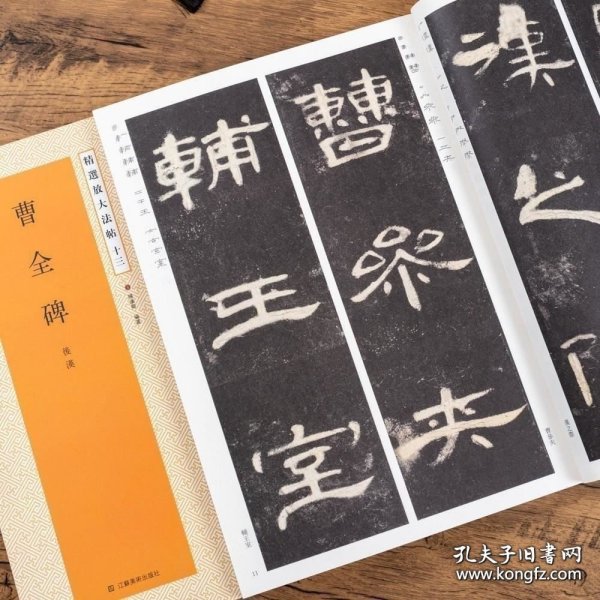 精選放大法帖 十三
曹全碑
後漢
江蘇美術出版社
漢之際
漢之際
曹參夾
曹參夾
輔王室
輔王室
11
孔夫子旧书网
www.kongfz.com